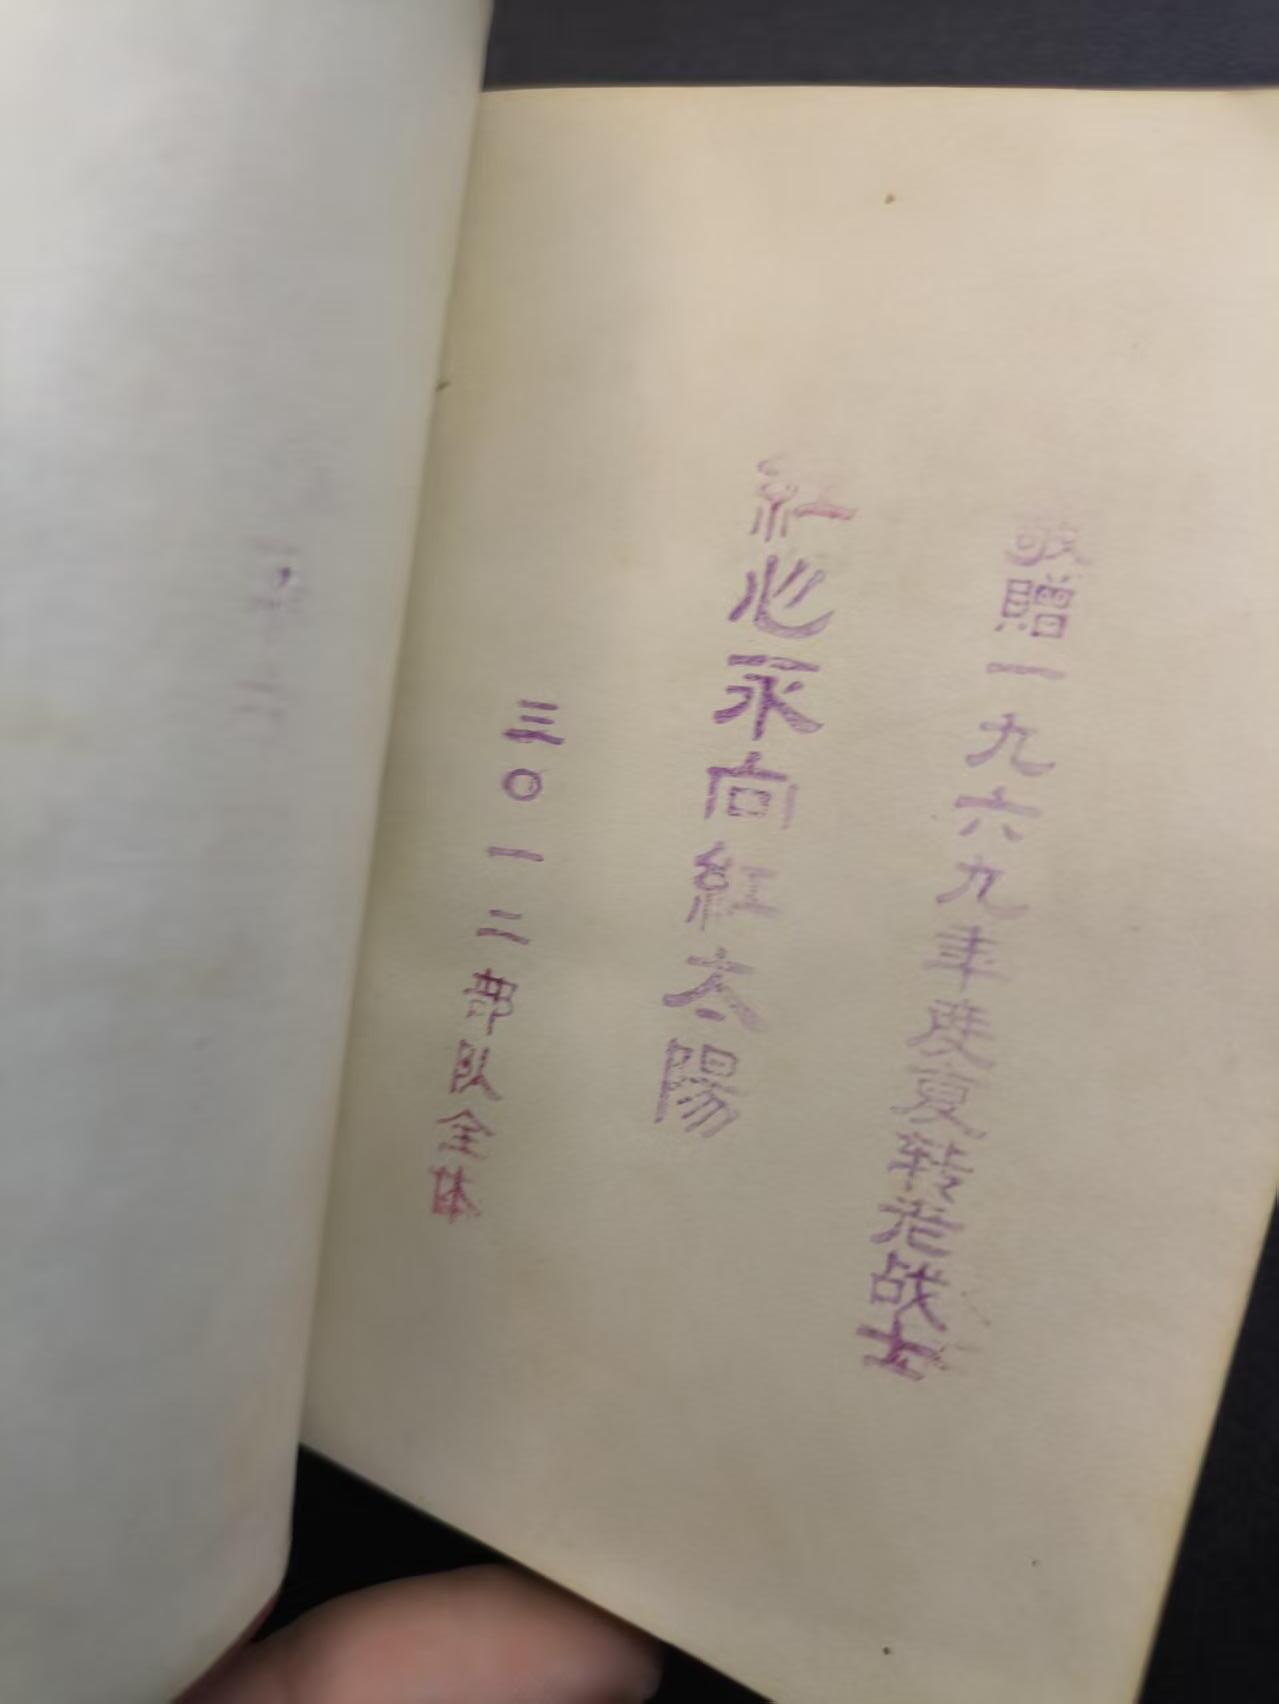 敬贈一九六九年度复转老战士
紅心永向紅太陽
三〇一二部队全体